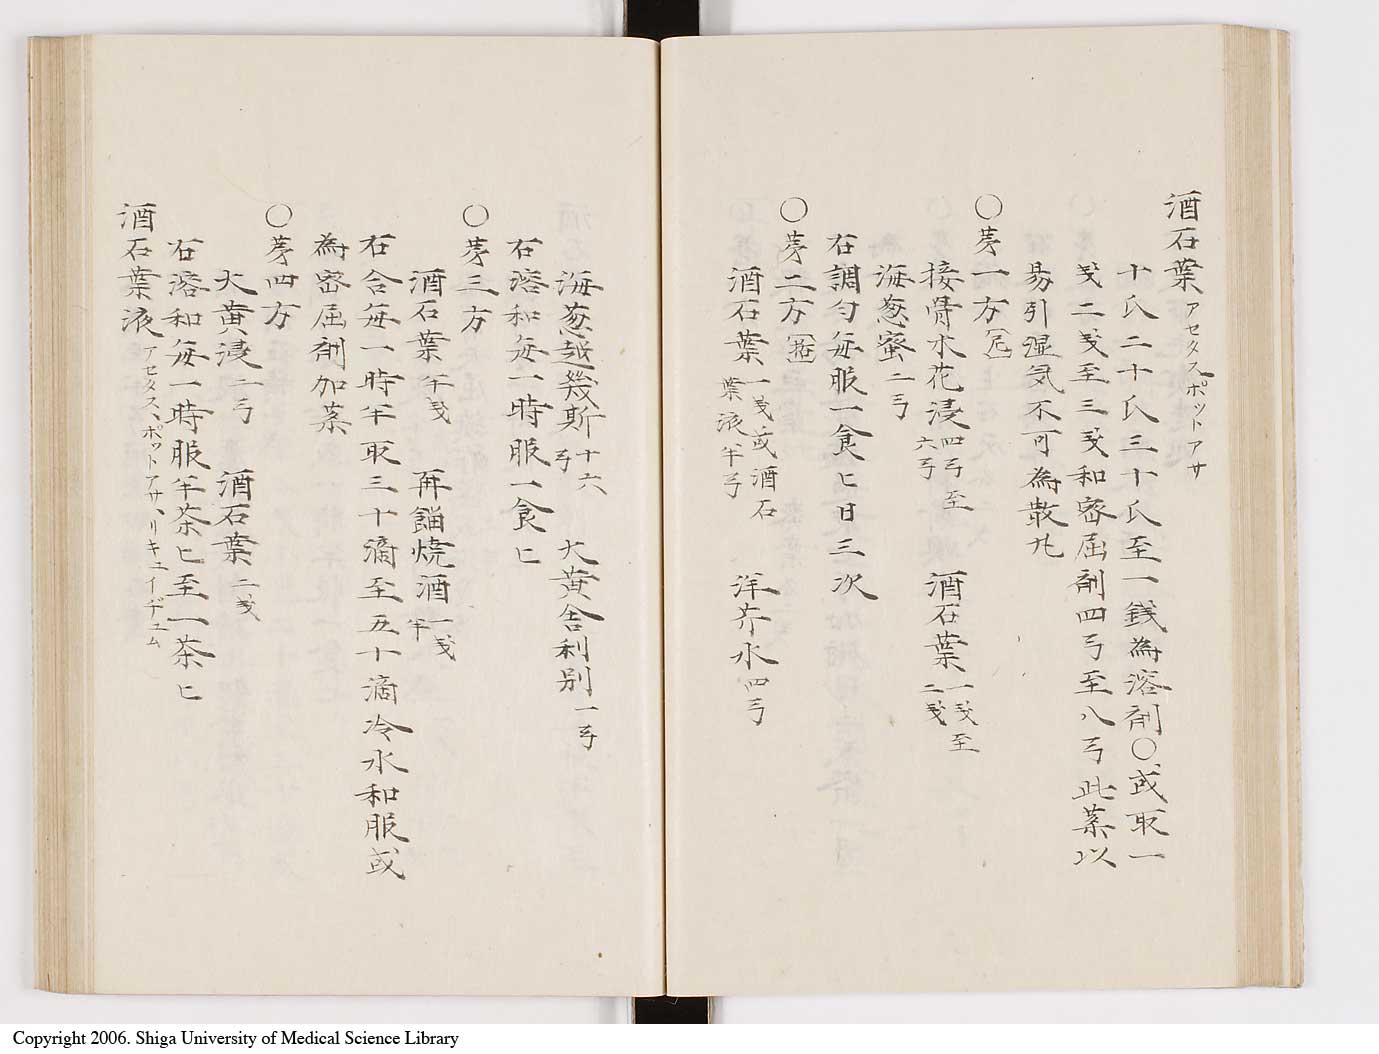 酒石葉アセタスポットアサ
十氏二十氏三十氏至一銭為溶剤〇或取一
戔二戔至三戔和密屈剤四弓至八弓此薬以
易引湿気不可為散丸
〇第一方
接骨水花浸四弓至六弓 酒石葉一戔至二戔
海葱蜜二弓
右調匀毎服一食匕日三次
〇第二方
酒石葉一戔或酒石葉液半弓 洋芥水四弓
海葱越幾斯十六弓 大黄舎利別一弓
右溶和毎一時服一食匕
〇第三方
酒石葉半戔 再餾焼酒一戔半
右合毎一時半取三十滴至五十滴冷水和服或
為密屈剤加薬
〇第四方
大黄浸二弓 酒石葉二戔
右溶和毎一時服半茶匕至一茶匕
酒石葉液アセタス、ポットアサ、リキュイデュム
Copyright 2006. Shiga University of Medical Science Library